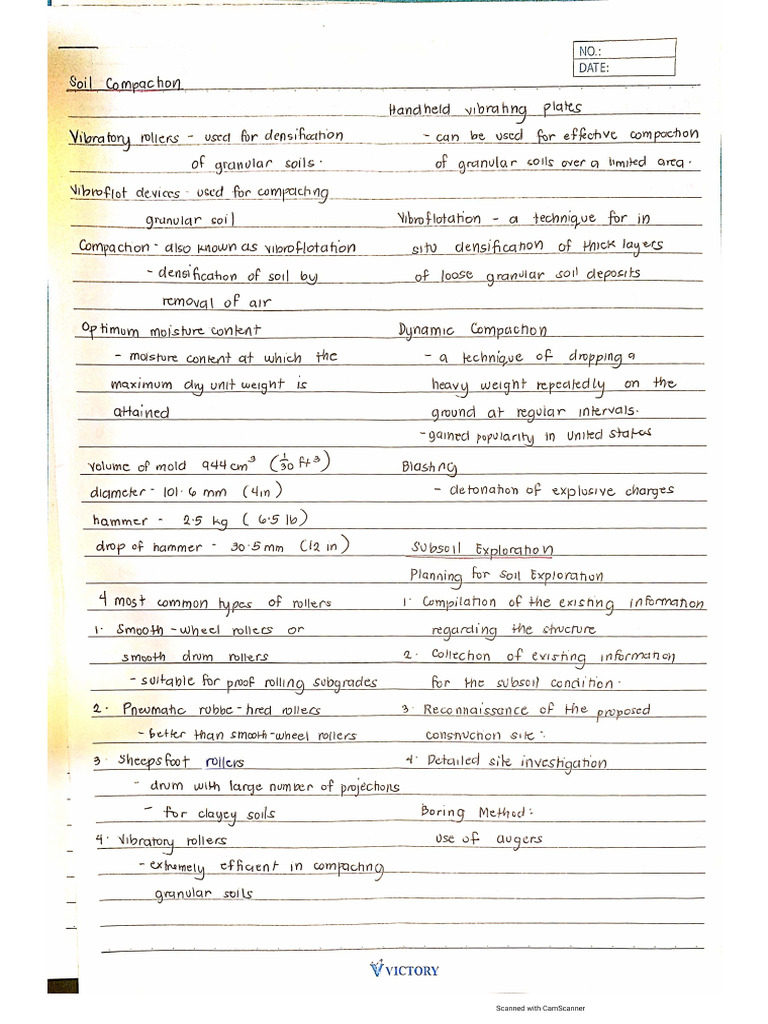 NO.:
DATE:
Soil Compaction
Vibratory rollers - used for densification
of granular soils.
Vibroflot devices - used for compacting
granular soil
Compaction - also known as vibroflotation
- densification of soil by
removal of air
Optimum moisture content
- moisture content at which the
maximum dry unit weight is
attained
volume of mold 944 cm³ (1/30 ft³)
diameter - 101.6 mm (4in)
hammer - 2.5 kg (6.5 lb)
drop of hammer - 30.5mm (12 in)
4 most common types of rollers
1. Smooth-wheel rollers or
smooth drum rollers
- suitable for proof rolling subgrades
2. Pneumatic rubbe-tired rollers
- better than smooth-wheel rollers
3. Sheepsfoot rollers
- drum with large number of projections
- for clayey soils
4. Vibratory rollers
- extremely efficient in compacting
granular soils
Handheld vibrating plates
- can be used for effective compaction
of granular soils over a limited area.
Vibroflotation - a technique for in
situ densification of thick layers
of loose granular soil deposits
Dynamic Compaction
- a technique of dropping a
heavy weight repeatedly on the
ground at regular intervals.
- gained popularity in United States
Blasting
- detonation of explosive charges
Subsoil Exploration
Planning for Soil Exploration
1. Compilation of the existing information
regarding the structure
2. Collection of existing information
for the subsoil condition.
3. Reconnaissance of the proposed
construction site.
4. Detailed site investigation
Boring Method:
use of augers
VICTORY
Scanned with CamScanner